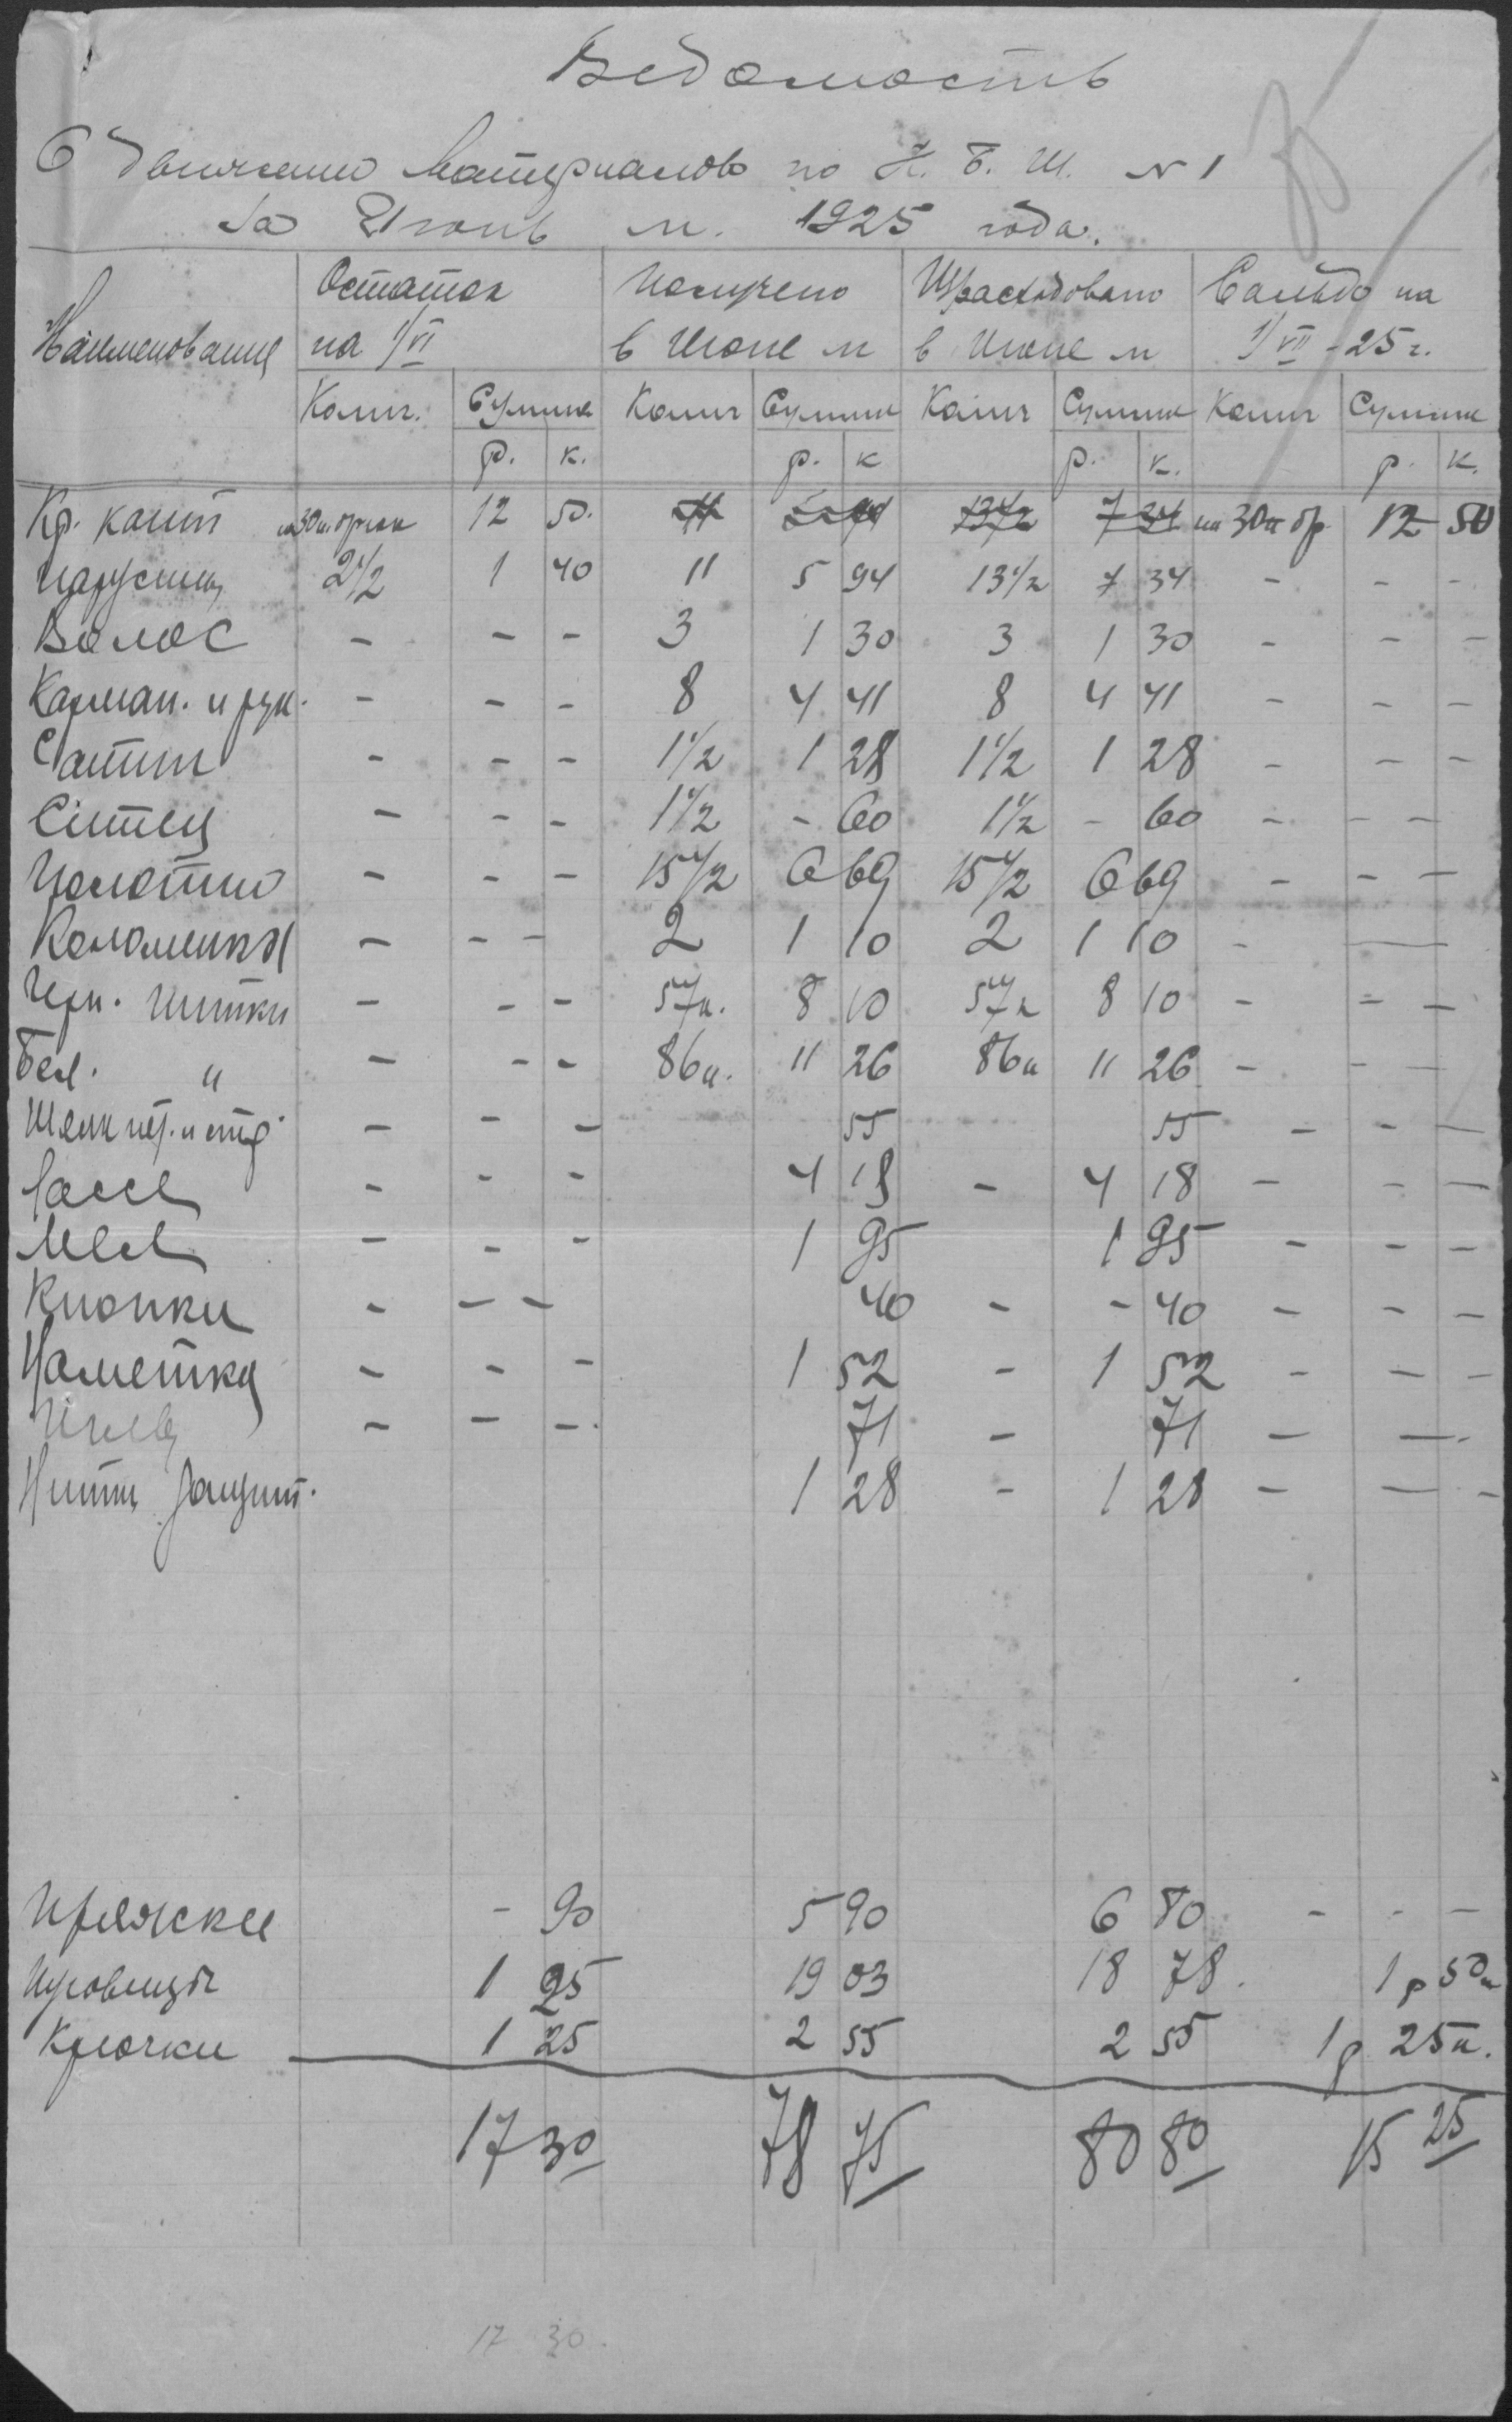 Ведомость
О движении материалов по К. Б. Ш. № 1
за Июнь м. 1925 года.
Наименование Остаток на 1/VI Получено в Июне м Израсходовано в Июне м Сальдо на 1/VII - 25 г.
Колич. Сумма Колич Сумма Колич Сумма Колич Сумма
р. к. р. к р. к. р. к.
Кр. кант на 30 п. брюк 12 50. 11 5 94 13 1/2 7 34 на 30 п бр. 12 50
Парусина 2 1/2 1 40 11 5 94 13 1/2 7 34 - - -
Волос - - - 3 1 30 3 1 30 - - -
Карман. и рук. - - - 8 4 41 8 4 41 - - -
Сатин - - - 1 1/2 1 28 1 1/2 1 28 - - -
Ситец - - - 1 1/2 - 60 1 1/2 - 60 - - -
Полотно - - - 15 1/2 6 69 15 1/2 6 69 - - -
Коломенка - - - 2 1 10 2 1 10 - —
Черн. нитки - - - 57 к. 8 10 57 к 8 10 - - -
Бел. " - - - 86 к. 11 26 86 к 11 26 - - -
Шелк - - - 55 55 - - -
- - - 4 18 - 4 18 - - -
Мел - - - 1 95 1 95 - - -
Кнопки - - - 40 - - 40 - - -
Наметка - - - 1 52 - 1 52 - - -
Иглы - - - 71 - 71 - —
Нитки - 1 28 - 1 28 - — -
Пряжки - 90 5 90 6 80 - - -
Пуговицы 1 25 19 03 18 78. 1 р 50 к
Крючки 1 25 2 55 2 55 1 р 25 к.
17 30 78 75 80 80 15 25
17 30.